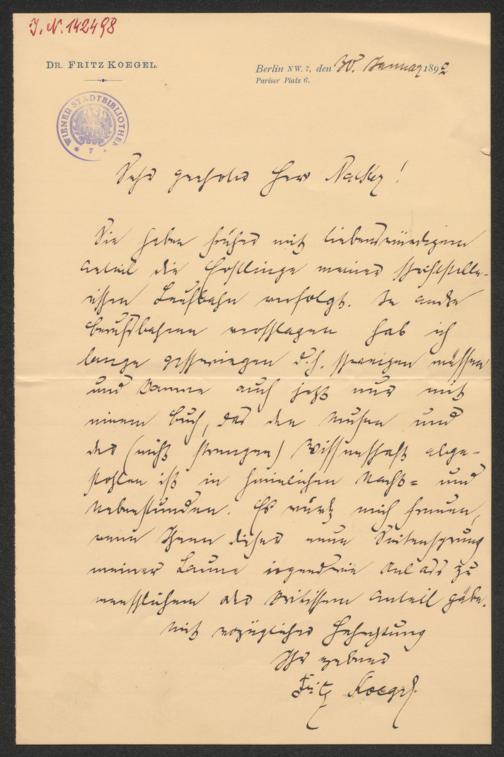 J. N. 142498
DR. FRITZ KOEGEL.
Berlin NW. 7, den 30. Januar 1892
Pariser Platz 6.
WIENER STADTBIBLIOTHEK
Sehr geehrter Herr Necker!
Sie haben früher mit liebenswürdigem
Anteil die Erstlinge meiner schriftstelle-
rischen Laufbahn verfolgt. In andre
Berufsbahnen verschlagen hab ich
lange geschwiegen d.h. schweigen müssen
und komme auch jetzt nur mit
einem Buch, das den Musen und
der (nicht strengen) Wissenschaft abge-
stohlen ist in heimlichen Nacht- und
Nebenstunden. Es würde mich freuen,
wenn Ihnen dieser neue Seitensprung
meiner Laune irgendwie Anlass zu
menschlichem oder kritischem Anteil gäbe.
Mit vorzüglicher Hochachtung
Ihr ergebener
Fritz Koegel.